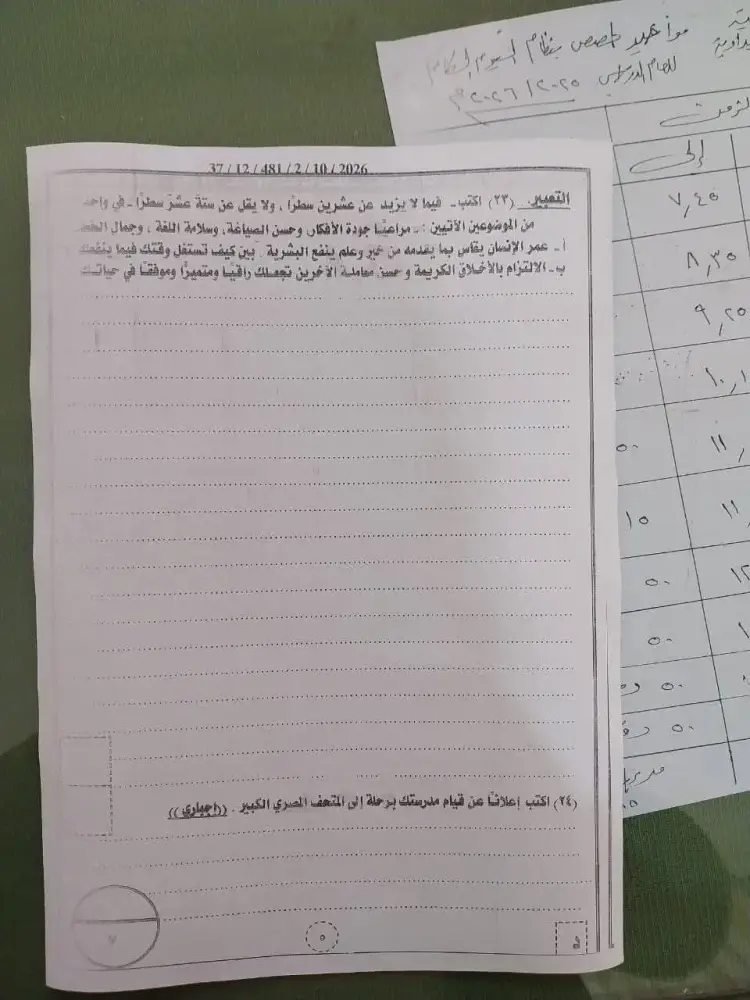 37 / 12 / 481 / 2 / 10 / 2026
التعبير. (٢٣) اكتب - فيما لا يزيد عن عشرين سطرًا ، ولا يقل عن ستة عشر سطرًا - في واحد
من الموضوعين الآتيين : - مراعيًا جودة الأفكار، وحسن الصياغة، وسلامة اللغة ، وجمال الخط
أ - عمر الإنسان يقاس بما يقدمه من خير وعلم ينفع البشرية . بين كيف تستغل وقتك فيما ينفعك
ب - الالتزام بالأخلاق الكريمة و حسن معاملة الآخرين تجعلك راقيًا ومتميزًا وموفقًا في حياتك
(٢٤) اكتب إعلانًا عن قيام مدرستك برحلة إلى المتحف المصري الكبير . ((إجباري))
٧
٥
مواعيد حصص بنظام اليوم الكامل
للعام الدراسي ٢٠٢٥ / ٢٠٢٦م
إلى
٧,٤٥
٨,٣٥
٩,٢٥
١٠,١
٥٠
١١,
١٥
١١
٥٠
١٢
٥٠
٥٠
٥٠